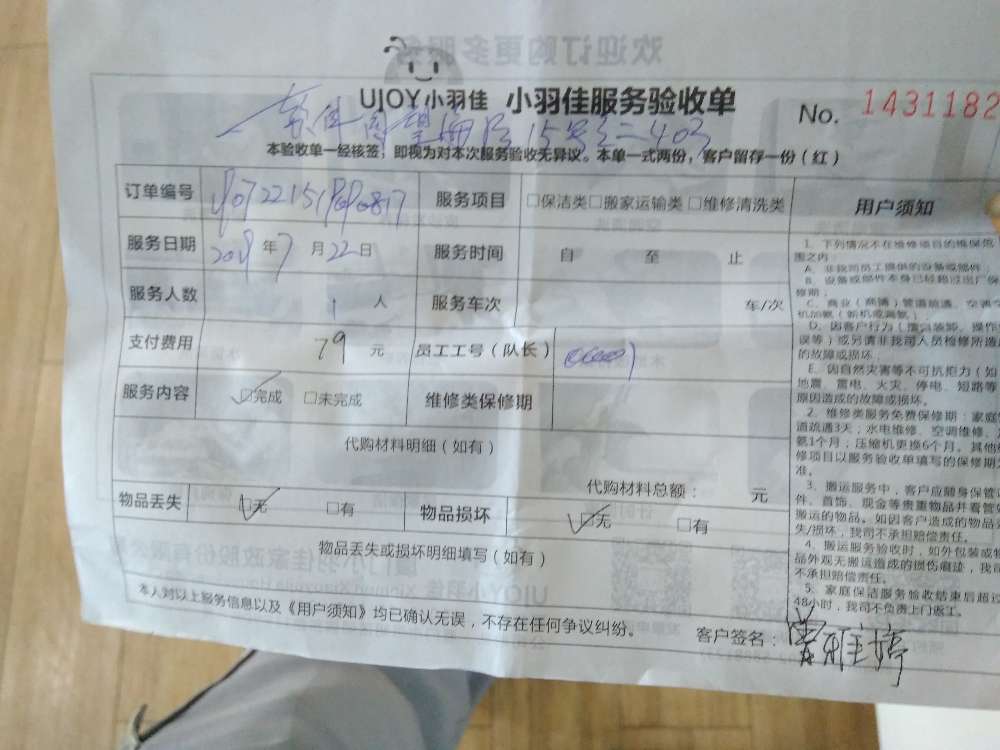 UJOY小羽佳 小羽佳服务验收单
No. 1431182
本验收单一经核签，即视为对本次服务验收无异议。本单一式两份，客户留存一份（红）
订单编号
服务项目 □保洁类□搬家运输类□维修清洗类
服务日期 2019年7月22日
服务时间 自 至 止
服务人数 1 人
服务车次 车/次
支付费用 79 元
员工工号（队长）
服务内容 ☑完成 □未完成
维修类保修期
代购材料明细（如有）
代购材料总额： 元
物品丢失 ☑无 □有
物品损坏 ☑无 □有
物品丢失或损坏明细填写（如有）
本人对以上服务信息以及《用户须知》均已确认无误，不存在任何争议纠纷。
客户签名：
用户须知
1、下列情况不在维修项目的维保范
围之内：
A、非我司员工提供的设备或部件；
B、设备或部件本身已经超过出厂保
修期；
C、商业（商铺）管道疏通、空调
机加氨（新机或漏氨）
D、因客户行为（擅自装赔、操作
误等）或另请非我司人员检修所造
的故障或损坏
E、因自然灾害等不可抗拒力（如
地震、雷电、火灾、停电、短路等
原因造成的故障或损坏。
2、维修类服务免费保修期：家庭
道疏通3天；水电维修、空调维修、
氨1个月；压缩机更换6个月。其他
修项目以服务验收单填写的保修期
准。
3、搬运服务中，客户应随身保管
件、首饰、现金等贵重物品并看管
搬运的物品。如因客户造成的物品
失/损坏，我司不承担赔偿责任。
4、搬运服务验收时，如外包装或物
品外观无搬运造成的损伤痕迹，我司
不承担赔偿责任。
5、家庭保洁服务验收结束后超过
48小时，我司不负责上门返工。